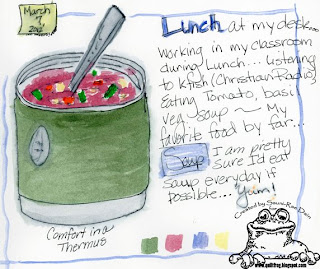 March
7
Lunch at my desk...
Working in my classroom
during Lunch... listening
to kfish (Christian Radio)
Eating Tomato, basil
veg soup ~ My
favorite food by far...
Soup I am pretty
sure I'd eat
soup everyday if
possible... Yum!
Comfort in a
Thermus
Created by
www.quiltfrog.blogspot.com